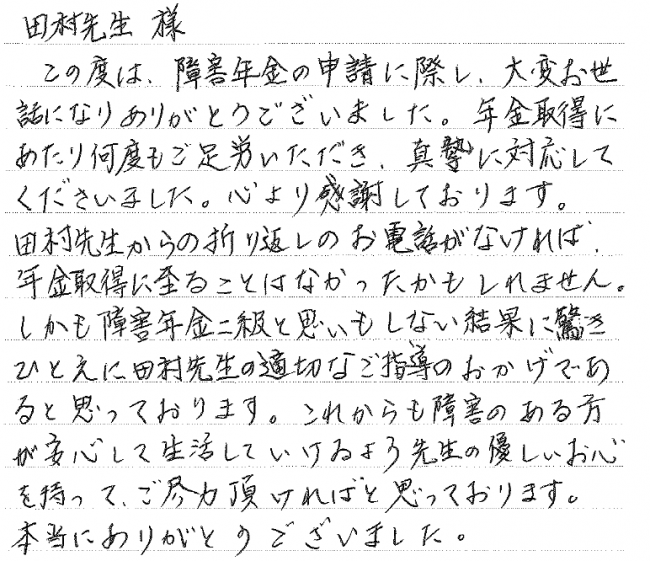 田村先生 様
この度は、障害年金の申請に際し、大変お世
話になりありがとうございました。年金取得に
あたり何度もご足労いただき、真摯に対応して
くださいました。心より感謝しております。
田村先生からの折り返しのお電話がなければ、
年金取得に至ることはなかったかもしれません。
しかも障害年金二級と思いもしない結果に驚き
ひとえに田村先生の適切なご指導のおかげであ
ると思っております。これからも障害のある方
が安心して生活していけるよう先生の優しいお心
を持って、ご尽力頂ければと思っております。
本当にありがとうございました。